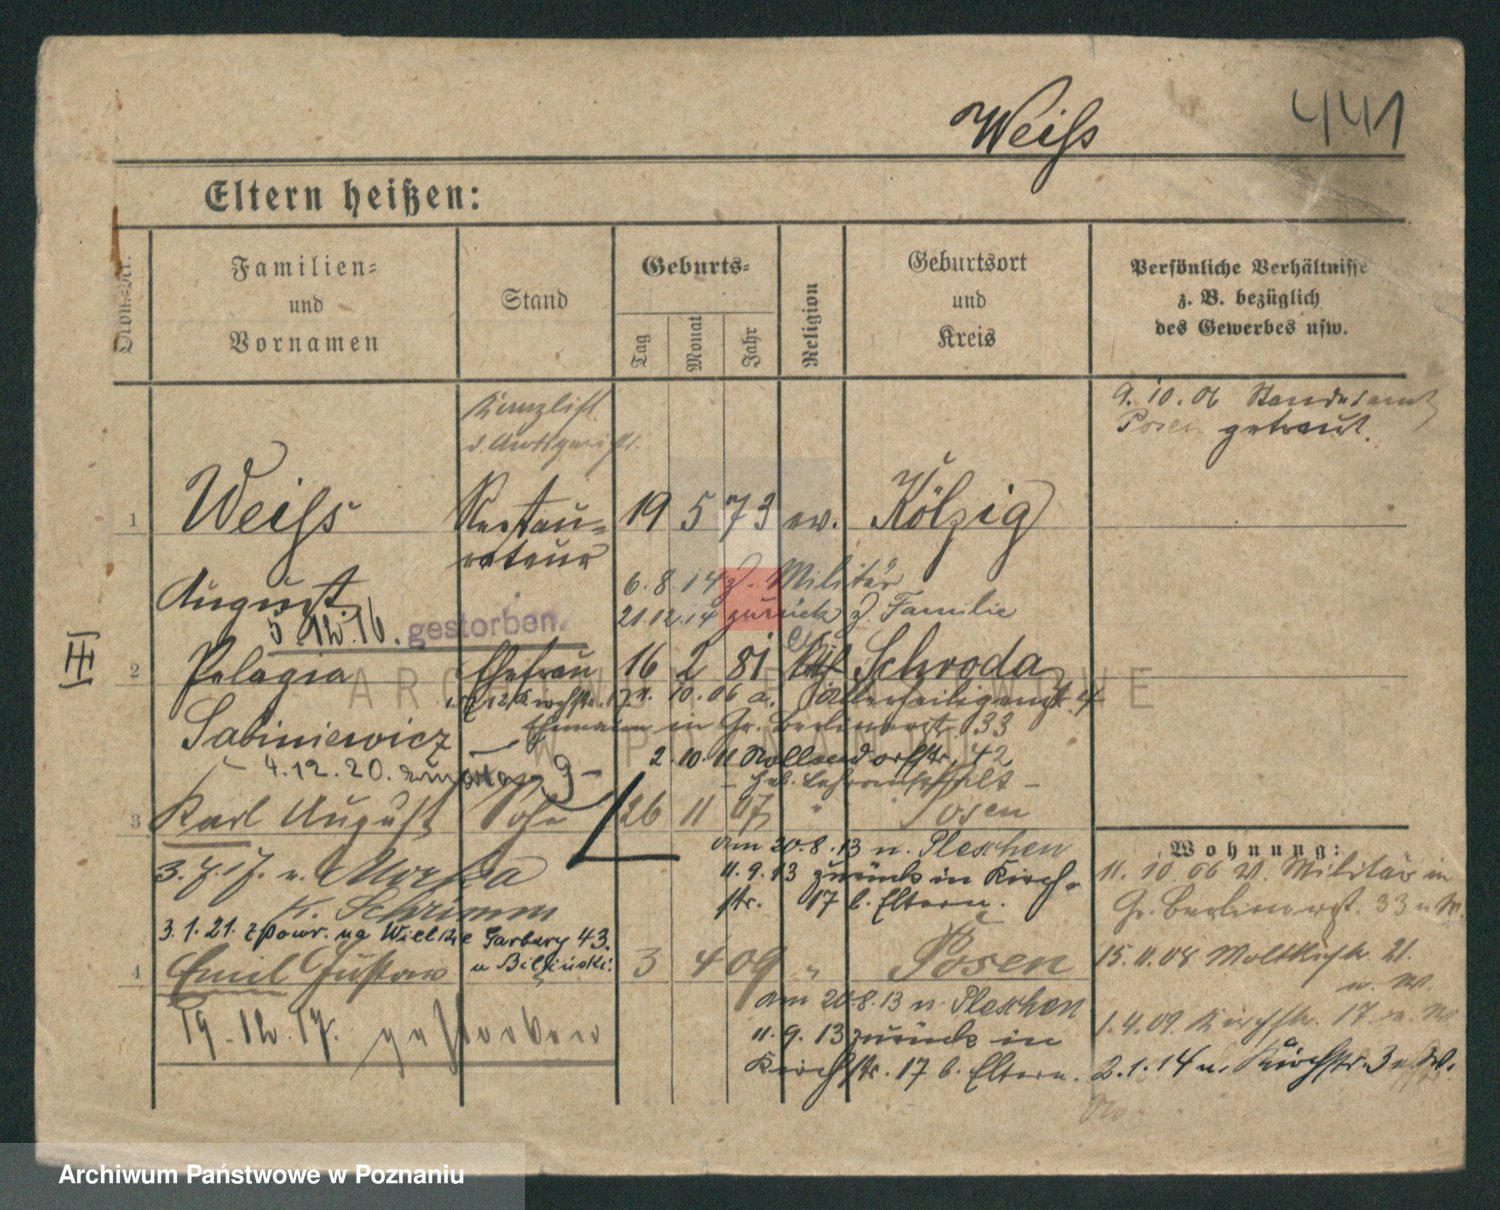 441
Weiß
Eltern heißen:
Ordn.-Nr.
Familien-
und
Vornamen
Stand
Geburts-
Tag
Monat
Jahr
Religion
Geburtsort
und
Kreis
Persönliche Verhältnisse
z. B. bezüglich
des Gewerbes usw.
9.10.06 Standesamt
Posen getraut.
Kanzlist
1 Weiß Restau- 19 5 73 ev. Kölzig
rateur
August
6.8.14 z. Militär
21.12.14 zurück z. Familie
5.12.16. gestorben.
III
2 Pelagia Ehefrau 16 2 81 Schroda
10.06 a. Allerheiligenst. 4
Ehemann in Gr. Berlinerst. 33
Sabiniewicz
2.10.11 Nollendorfstr. 42
4.12.20. zmarła
3 Karl August Sohn 26 11 07 " Posen
am 20.8.13 n. Pleschen
11.9.13 zurück in Kirch-
str. 17 b. Eltern.
3.7.17. n. Morka
K. Schrimm
3.1.21. z powr. na Wielkie Garbary 43.
u Biliński.
4 Emil Gustav " 3 4 09 " Posen
am 20.8.13 n. Pleschen
11.9.13 zurück in
Kirchstr. 17 b. Eltern.
19.12.17. gestorben
Wohnung:
11.10.06 v. Militär in
Gr. Berlinerst. 33 u. W.
15.11.08 Moltkestr. 21.
u. W.
1.4.09. Kirchstr. 17 u. W.
2.1.14 n. Kirchstr. 3 u. W.
ARCHIWUM PAŃSTWOWE
W POZNANIU
Archiwum Państwowe w Poznaniu